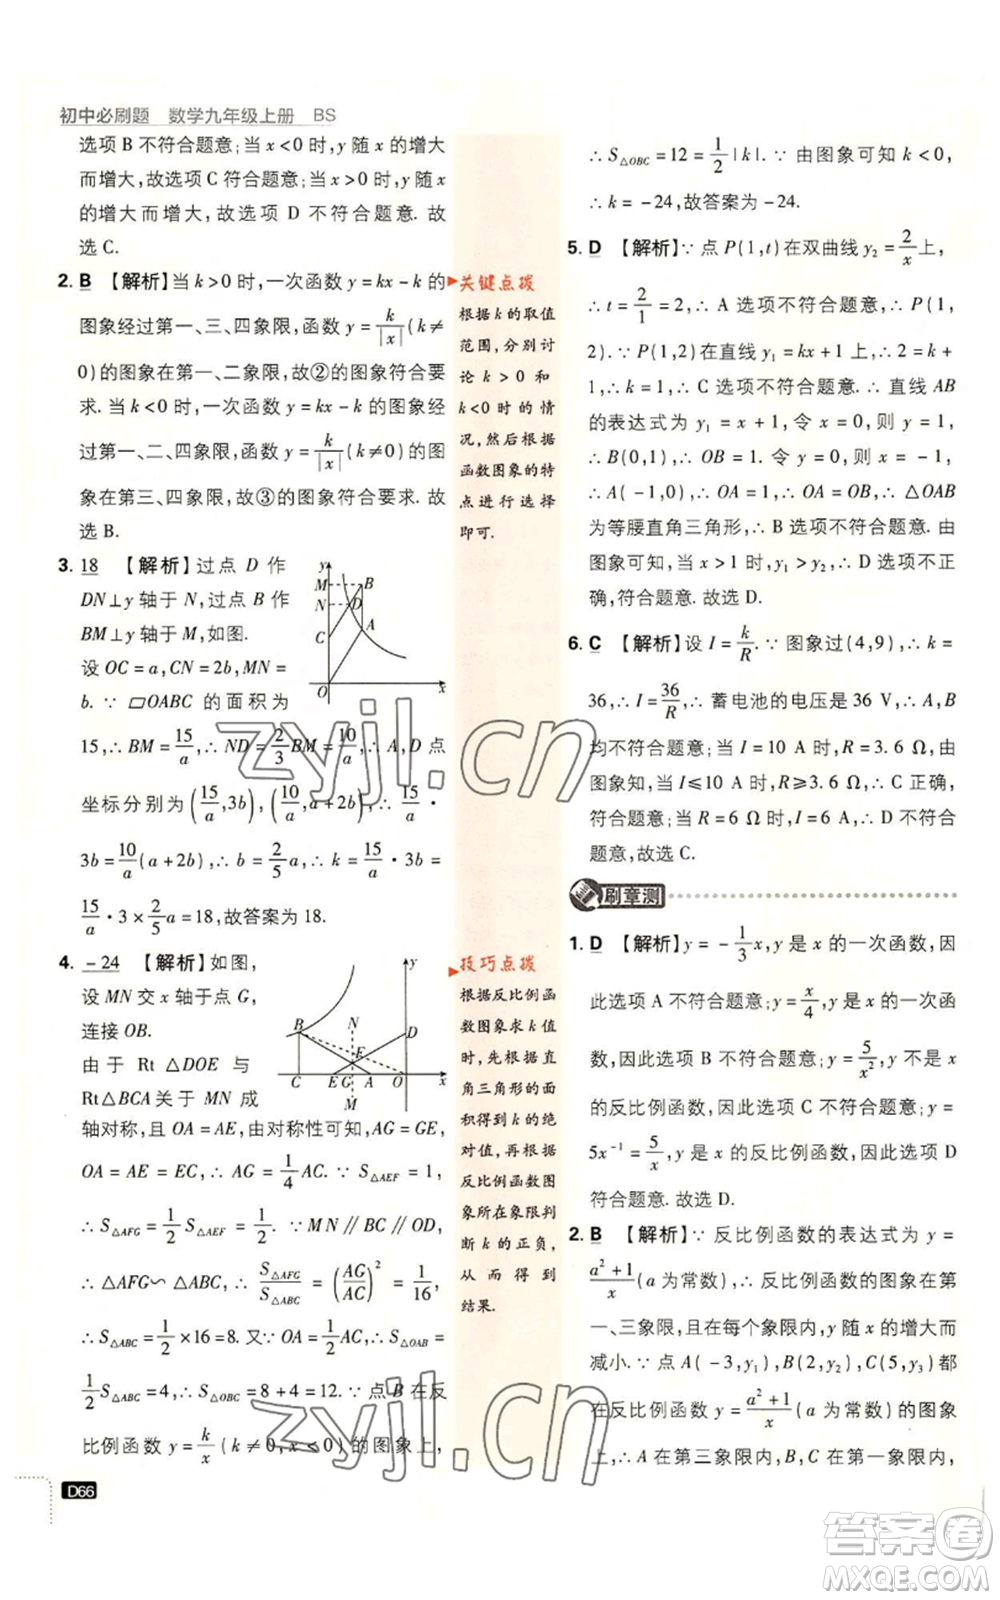 初中必刷题 数学九年级上册 BS
选项 B 不符合题意;当 x<0 时,y 随 x 的增大
而增大,故选项 C 符合题意;当 x>0 时,y 随 x
的增大而增大,故选项 D 不符合题意. 故
选 C.
2. B 【解析】当 k>0 时,一次函数 y=kx-k 的
图象经过第一、三、四象限,函数 y=k/|x|(k≠
0)的图象在第一、二象限,故②的图象符合要
求. 当 k<0 时,一次函数 y=kx-k 的图象经
过第一、二、四象限,函数 y=k/|x|(k≠0)的图
象在第三、四象限,故③的图象符合要求. 故
选 B.
3. 18 【解析】过点 D 作
DN⊥y 轴于 N,过点 B 作
BM⊥y 轴于 M,如图.
设 OC=a,CN=2b,MN=
b. ∵ ▱OABC 的面积为
15,∴BM=15/a,∴ND=2/3BM=10/a,∴A,D 点
坐标分别为(15/a,3b),(10/a,a+2b),∴15/a·
3b=10/a(a+2b),∴b=2/5a,∴k=15/a·3b=
15/a·3×2/5a=18,故答案为 18.
y
M
B
N
D
C
A
O
x
4. -24 【解析】如图,
设 MN 交 x 轴于点 G,
连接 OB.
由于 Rt △DOE 与
Rt△BCA 关于 MN 成
轴对称,且 OA=AE,由对称性可知,AG=GE,
OA=AE=EC,∴AG=1/4AC,∵S△AEF=1,
∴S△AFG=1/2S△AEF=1/2. ∵MN∥BC∥OD,
∴△AFG∽△ABC,∴S△AFG/S△ABC=(AG/AC)²=1/16,
∴S△ABC=1/2×16=8. 又∵OA=1/2AC,∴S△OAB=
1/2S△ABC=4,∴S△OBC=8+4=12. ∵点 B 在反
比例函数 y=k/x(k≠0,x<0)的图象上,
y
B
N
D
F
C
E
G
A
O
x
M
关键点拨
根据 k 的取值
范围,分别讨
论 k>0 和
k<0 时的情
况,然后根据
函数图象的特
点进行选择
即可.
技巧点拨
根据反比例函
数图象求 k 值
时,先根据直
角三角形的面
积得到 k 的绝
对值,再根据
反比例函数图
象所在象限判
断 k 的正负,
从而得到
结果.
∴S△OBC=12=1/2|k|. ∵由图象可知 k<0,
∴k=-24,故答案为-24.
5. D 【解析】∵点 P(1,t)在双曲线 y₂=2/x上,
∴t=2/1=2,∴A 选项不符合题意,∴P(1,
2). ∵P(1,2)在直线 y₁=kx+1 上,∴2=k+
1,∴k=1,∴C 选项不符合题意. ∴直线 AB
的表达式为 y₁=x+1,令 x=0,则 y=1,
∴B(0,1),∴OB=1. 令 y=0,则 x=-1,
∴A(-1,0),∴OA=1,∴OA=OB,∴△OAB
为等腰直角三角形,∴B 选项不符合题意. 由
图象可知,当 x>1 时,y₁>y₂,∴D 选项不正
确,符合题意. 故选 D.
6. C 【解析】设 I=k/R. ∵图象过(4,9),∴k=
36,∴I=36/R,∴蓄电池的电压是 36 V,∴A,B
均不符合题意;当 I=10 A 时,R=3.6 Ω,由
图象知,当 I≤10 A 时,R≥3.6 Ω,∴C 正确,
符合题意;当 R=6 Ω 时,I=6 A,∴D 不符合
题意,故选 C.
刷章测
1. D 【解析】y=-1/3x,y 是 x 的一次函数,因
此选项 A 不符合题意;y=x/4,y 是 x 的一次函
数,因此选项 B 不符合题意;y=5/x²,y 不是 x
的反比例函数,因此选项 C 不符合题意;y=
5x⁻¹=5/x,y 是 x 的反比例函数,因此选项 D
符合题意. 故选 D.
2. B 【解析】∵反比例函数的表达式为 y=
a²+1/x(a 为常数),∴反比例函数的图象在第
一、三象限,且在每个象限内,y 随 x 的增大而
减小. ∵点 A(-3,y₁),B(2,y₂),C(5,y₃)都
在反比例函数 y=a²+1/x(a 为常数)的图象
上,∴A 在第三象限内,B,C 在第一象限内,
D66
zyjl.cn
zyjl.cn
答案卷
MXQE.COM